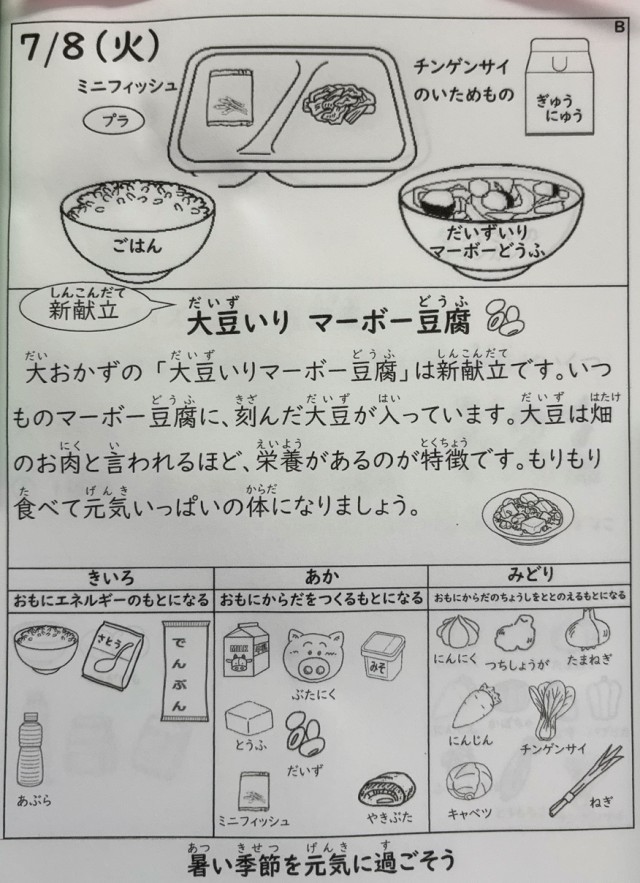 B
7/8(火)
ミニフィッシュ
プラ
チンゲンサイ
のいためもの
ぎゅう
にゅう
ごはん
だいずいり
マーボーどうふ
しんこんだて
新献立
だいず どうふ
大豆いり マーボー豆腐
だい だいず どうふ しんこんだて
大おかずの「大豆いりマーボー豆腐」は新献立です。いつ
どうふ きざ だいず はい だいず はたけ
ものマーボー豆腐に、刻んだ大豆が入っています。大豆は畑
にく い えいよう とくちょう
のお肉と言われるほど、栄養があるのが特徴です。もりもり
た げんき からだ
食べて元気いっぱいの体になりましょう。
きいろ
おもにエネルギーのもとになる
さとう
でんぷん
あぶら
あか
おもにからだをつくるもとになる
ぶたにく
みそ
とうふ
だいず
ミニフィッシュ
やきぶた
みどり
おもにからだのちょうしをととのえるもとになる
にんにく
つちしょうが
たまねぎ
にんじん
チンゲンサイ
キャベツ
ねぎ
あつ きせつ げんき す
暑い季節を元気に過ごそう